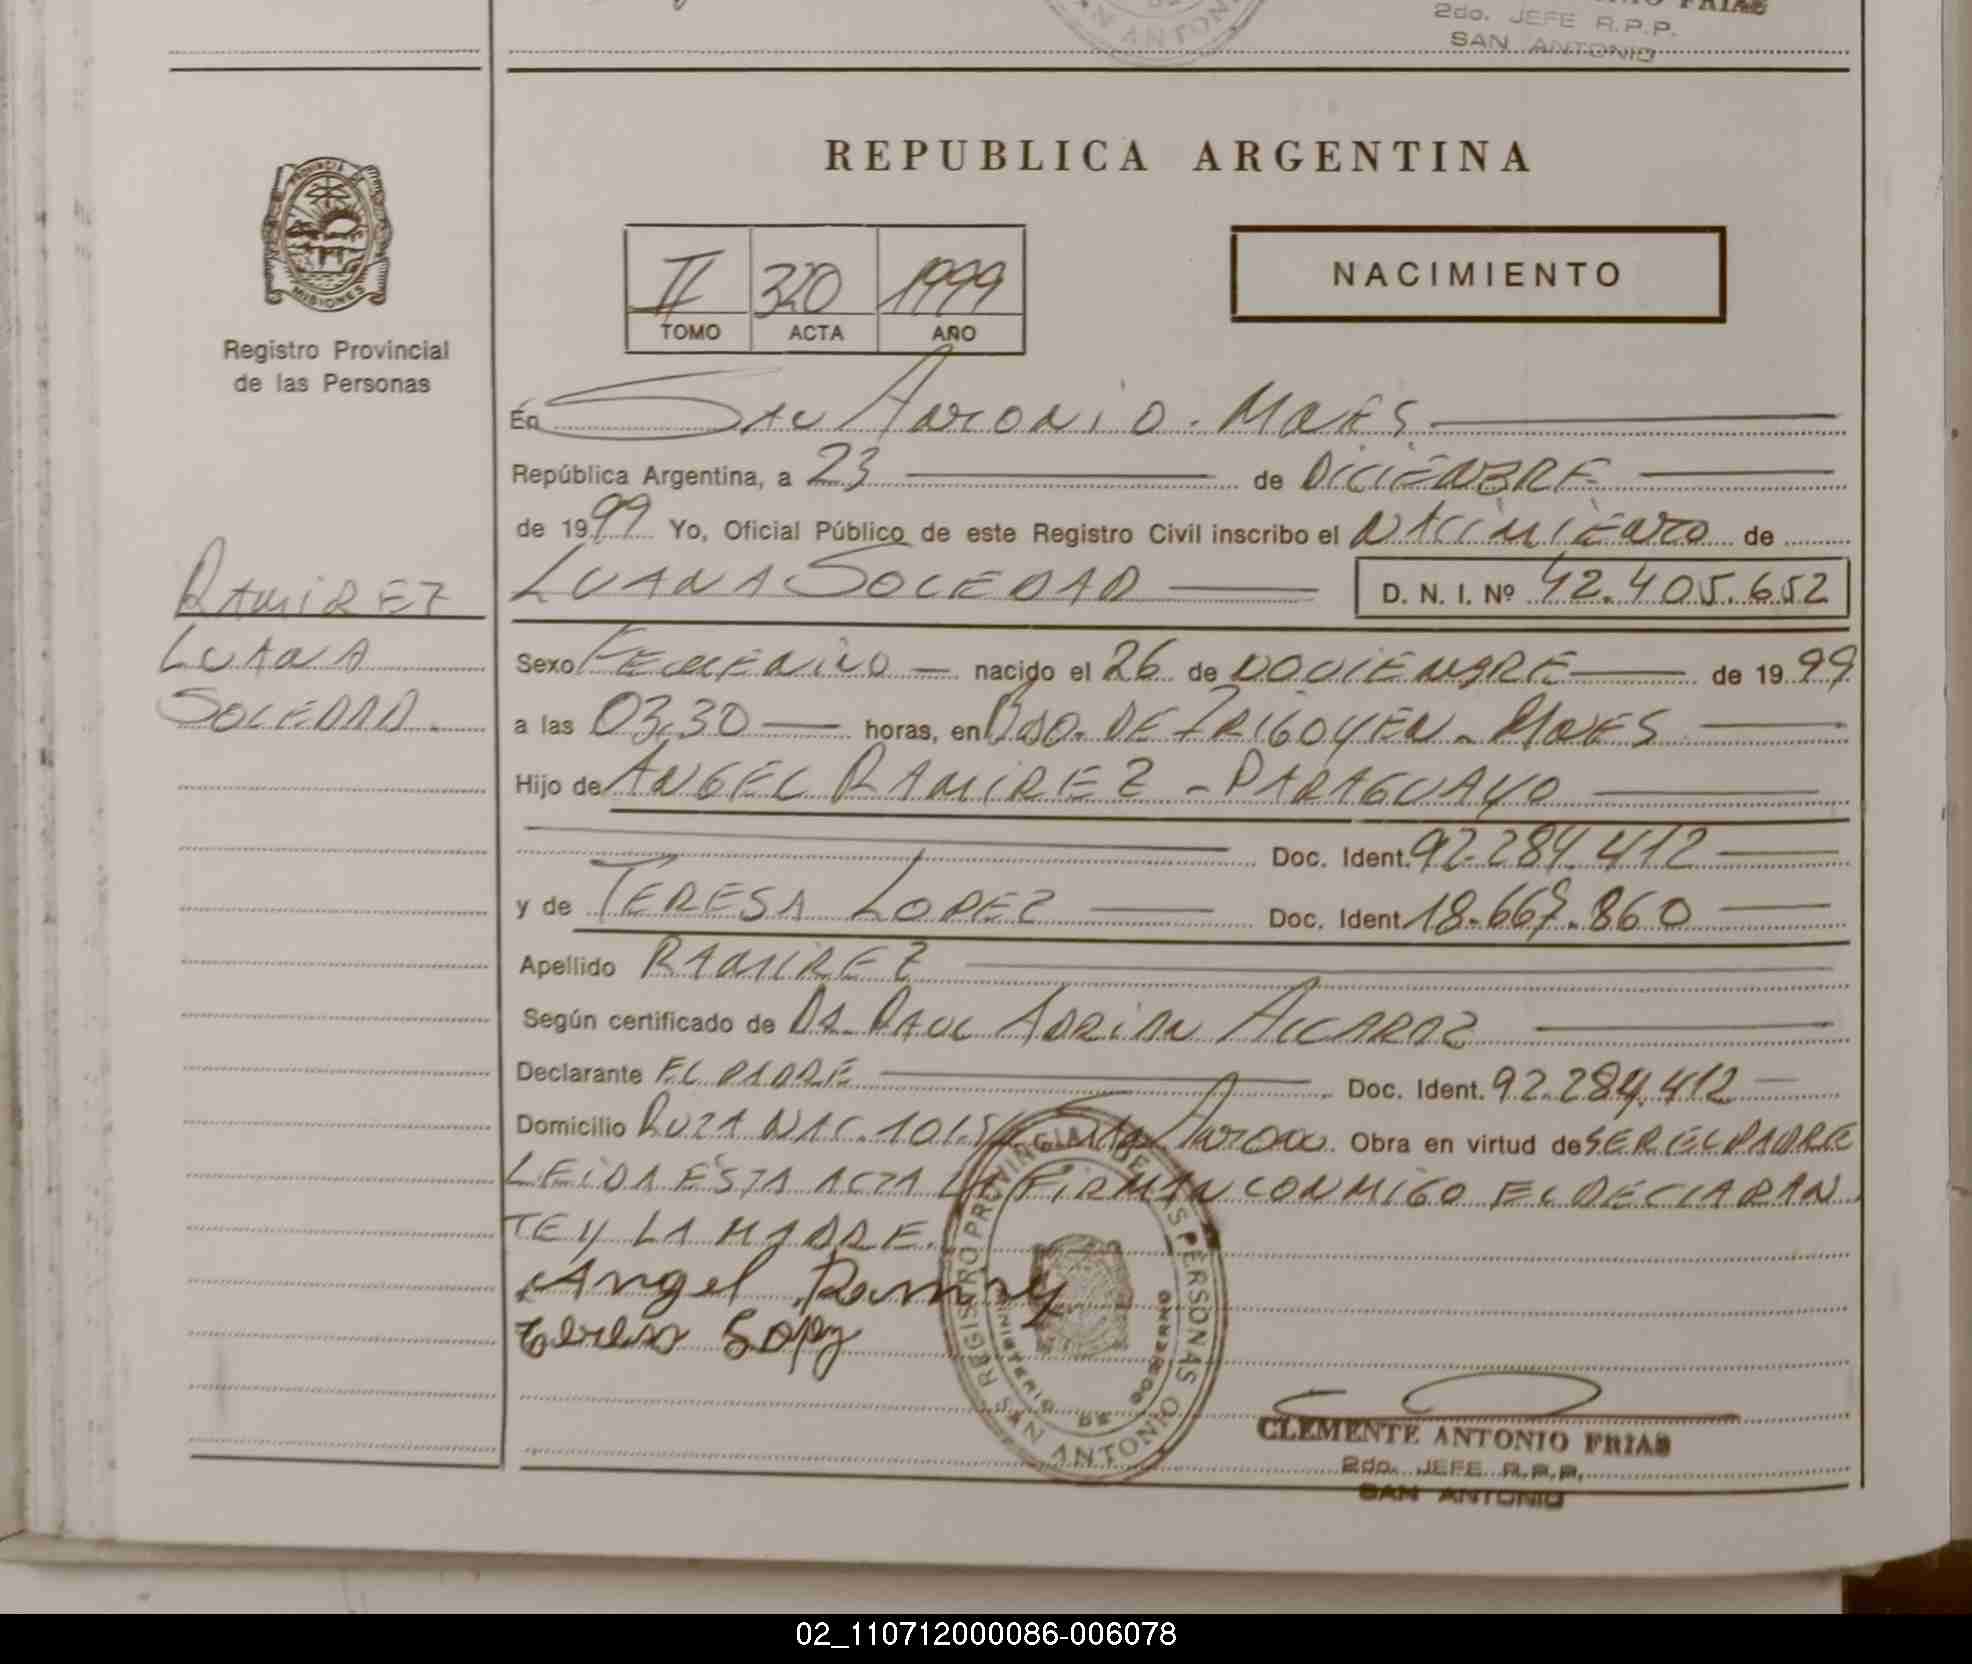 FRIAS
2do. JEFE R.P.P.
SAN ANTONIO
SAN ANTONIO
PROVINCIA DE
MISIONES
Registro Provincial
de las Personas
RAMIREZ
LUANA
SOLEDAD.
REPUBLICA ARGENTINA
II 320 1999
TOMO ACTA AÑO
NACIMIENTO
En SAN ANTONIO - MNES
República Argentina, a 23 de DICIEMBRE
de 1999 Yo, Oficial Público de este Registro Civil inscribo el NACIMIENTO de
LUANA SOLEDAD D. N. I. Nº 42.405.652
Sexo FEMENINO nacido el 26 de NOVIEMBRE de 1999
a las 03,30 horas, en BDO. DE IRIGOYEN - MNES
Hijo de ANGEL RAMIREZ - PARAGUAYO
Doc. Ident. 92.284.412
y de TERESA LOPEZ Doc. Ident. 18.667.860
Apellido RAMIREZ
Según certificado de DR. RAUL ADRIAN ALCARAZ
Declarante EL PADRE Doc. Ident. 92.284.412
Domicilio RUTA NAC. 101. ANTONIO. Obra en virtud de SER EL PADRE
LEIDA ESTA ACTA LA FIRMAN CONMIGO EL DECLARAN
TE Y LA MADRE.
Angel Ramirez
Teresa Lopez
REGISTRO PROVINCIAL DE LAS PERSONAS
MINISTERIO DE GOBIERNO
SAN ANTONIO
CLEMENTE ANTONIO FRIAS
2do. JEFE R.P.P.
SAN ANTONIO
02_110712000086-006078